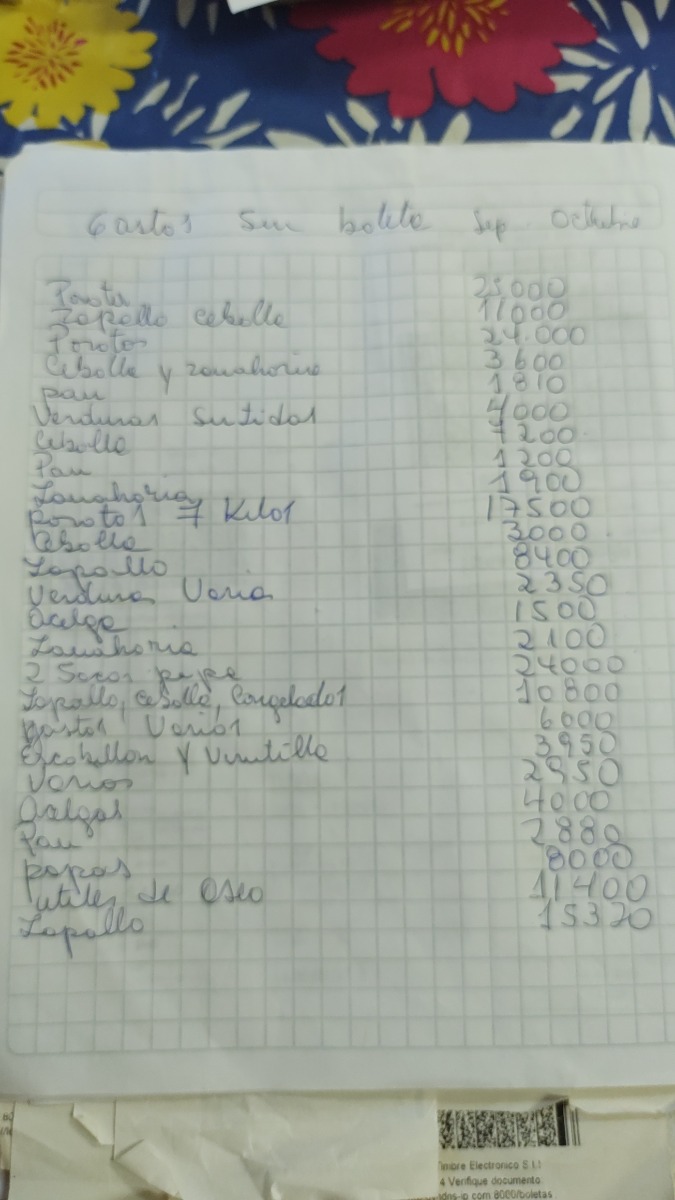 Gastos sin boleta Sep Octubre
25.000
Zapallo cebolla 11000
Porotos 24.000
Cebolla y zanahoria 3600
pan 1810
Verduras Surtidas 4000
Cebolla 7200
Pan 1200
Zanahoria 1900
porotos 7 Kilos 17500
Cebolla 3000
Zapallo 8400
Verduras Varia 2350
Acelga 1500
Zanahoria 2100
2 Sacos papa 24000
Zapallo, cebolla, Congelados 10800
gastos Varios 6000
Escobillon y Virutilla 3950
Varios 2950
Acelgas 4000
Pan 2880
papas 8000
utiles de Aseo 11400
Zapallo 15370
Timbre Electronico S.I.I
4 Verifique documento
com 8000/boletas